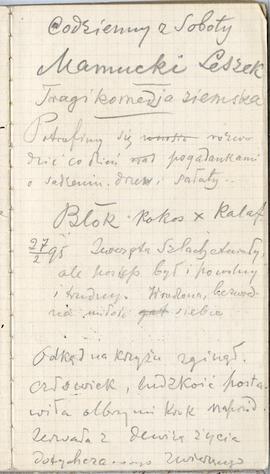 Codzienny z Soboty
Mamucki Leszek
Tragikomedja ziemska
Potrafimy się rozwo
dzić codzień nad pogadankami
o sadzeniu drzew, sałaty..
Błok · Kokos × Kalaf
27/2 95 Zwierzęta Szlachetniały,
ale postęp był i powolny
i trudny. Wrodzona, bezwied
na miłość siebie
Odkąd na krzyżu zginął
człowiek, ludzkość posta
wiła olbrzymi krok naprzód.
Zerwała z dewizą życia
dotychczasowego zwierzęcego